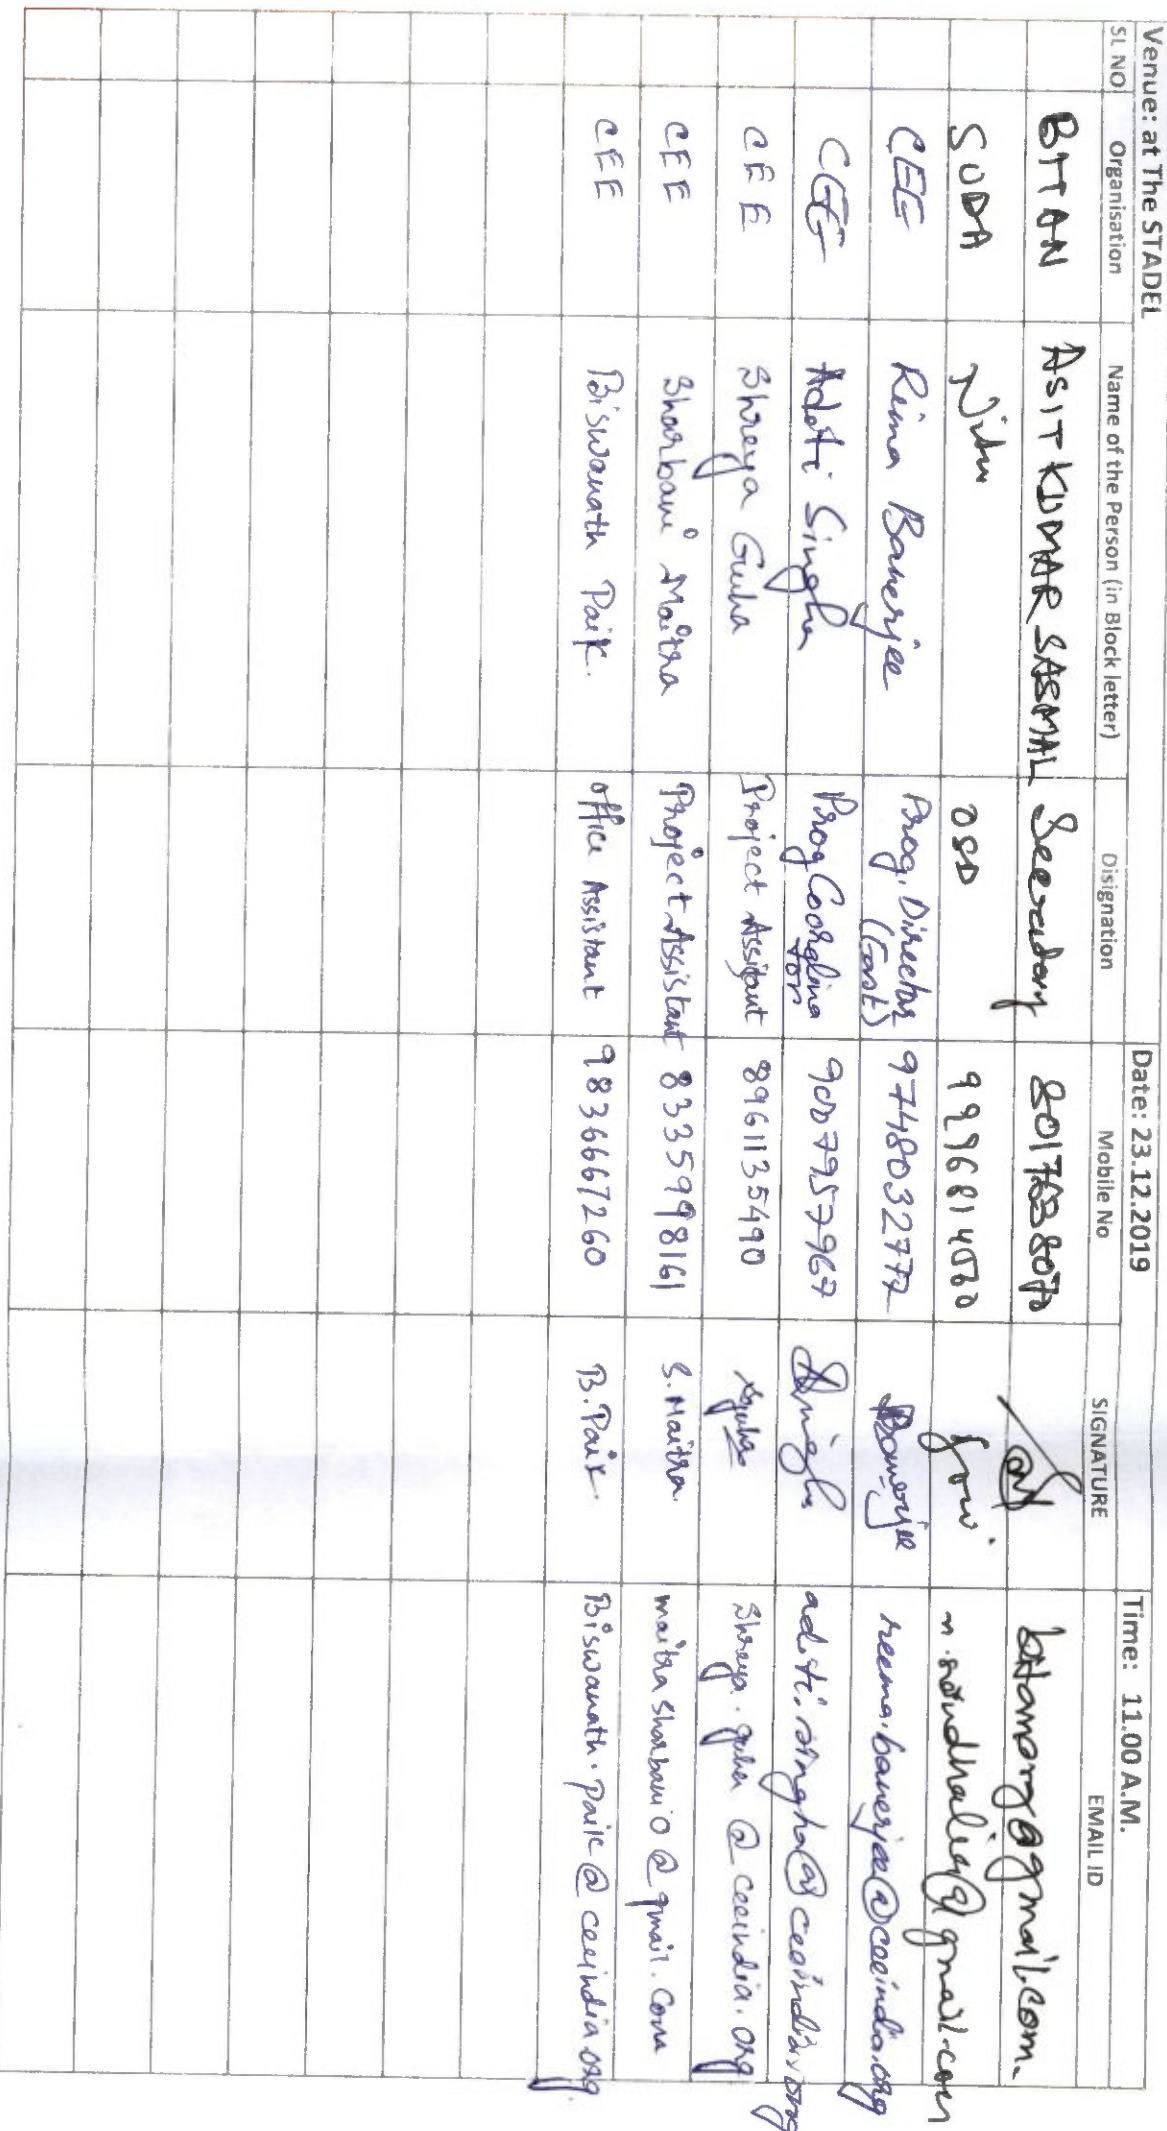 Venue: at The STADEL Date: 23.12.2019 Time: 11.00 A.M.
SL NO Organisation Name of the Person (in Block letter) Disignation Mobile No SIGNATURE EMAIL ID
BITAN ASIT KUMAR SASMAL Secretary
SUDA Nitu OSD
CEE Reema Banerjee Prog. Director (East) 9748032777 Banerjee reema.banerjee@ceeindia.org
CEE Aditi Singha Prog Coordinator 9007957967 Singha aditi.singha@ceeindia.org
CEE Shreya Guha Project Assistant 8961135490 Sguha Shreya.guha@ceeindia.org
CEE Sharbani Maitra Project Assistant 8335998161 S. Maitra maitrasharbani0@gmail.com
CEE Biswanath Paik. office Assistant 9836667260 B. Paik. Biswanath.Paik@ceeindia.org